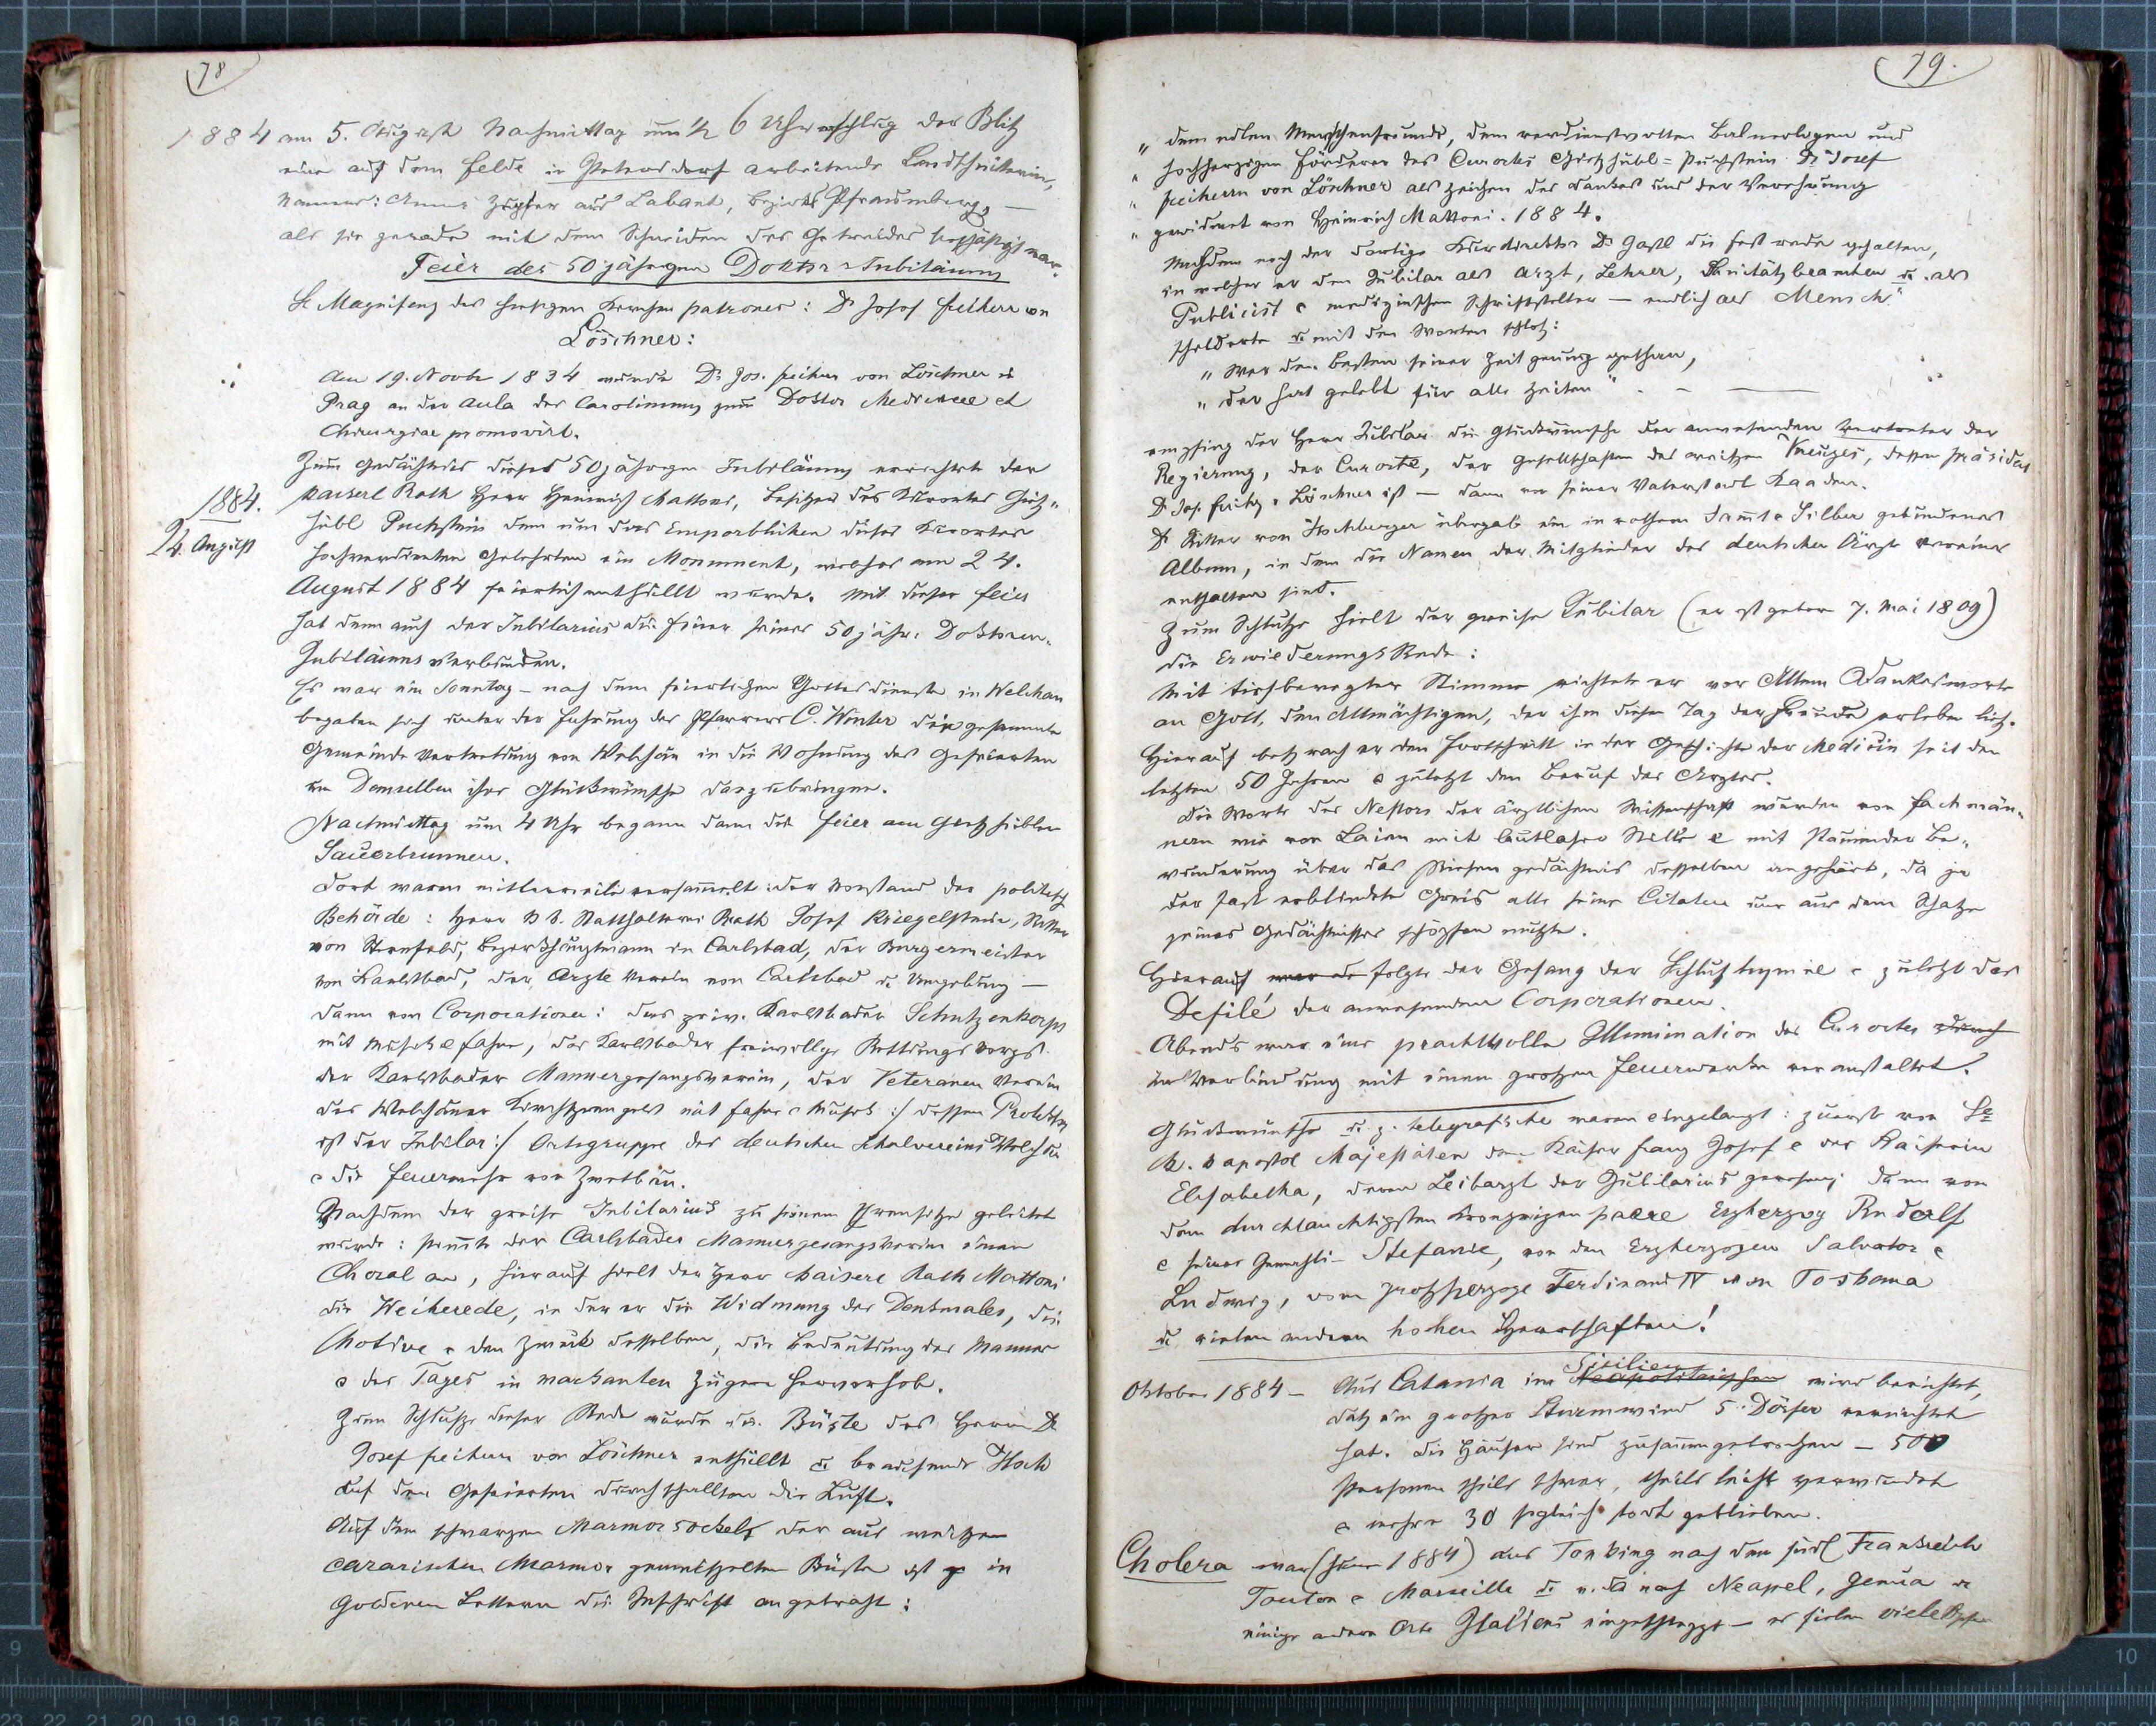 78
1884 am 5. August Nachmittag um ½ 6 Uhr erschlug der Blitz
eine auf dem Felde in Petersdorf arbeitende Landschnitterin,
Namens: Anna aus Labant, Bezirks Pfraumberg, —
als sie gerade mit dem Schneiden des Getreides beschäftigt war.
Feier des 50 jährigen Doktor-Jubiläums
Sr Magnifenz des hiesigen Kirchenpatrones: Dr Josef Freiherr von
Löschner:
Am 19. Novbr 1834 wurde Dr Jos. Freiherr von Löschner in
Prag an der Aula des Carolinums zum Doktor Medicinae et
Chirurgiae promovirt.
Zum Gedächtnis dieses 50jährigen Jubiläums errichtete der
1884.
kaiserl Rath Herr Heinrich Mattoni, Besitzer des Kurortes Gieß„
24. August
hübl Puchstein dem um das Emporblühen dieses Kurortes
hochverdienten Gelehrten ein Monument, welches am 24.
August 1884 feierlich enthüllt wurde. Mit dieser Feier
hat dann auch der Jubilarius die Feier seines 50jähr. Doktoren„
Jubiläums verbunden.
Es war ein Sonntag – nach dem feierlichen Gottesdienste in Welchau
begaben sich unter der Führung des Pfarrers C. Winter die gesammte
Gemeinde Vertretung von Welchau in die Wohnung des Gefeierten
um Demselben ihre Glückwünsche darzubringen.
Nachmittag um 4 Uhr begann dann die Feier am Gießhübler
Sauerbrunnen.
Dort waren mittlerweile versammelt: der Vorstand der politisch
Behörde: Herr k k. Statthalterei Rath Josef Kriegelstein, Ritter
von Sternfeld, Bezirkshauptmann in Carlsbad, der Burgermeister
von Karlsbad, der Ärzte Verein von Carlsbad u Umgebung —
dann von Corporationen: das priv. Karlsbader Schutzenkorps
mit Musik e Fahne, das Karlsbader freiwillige Rettungskorps
der Karlsbader Mannergesangsverein, der Veteranen Verein
des Welchauer Kirchsprengels mit Fahne e Musik :/ dessen Protektor
ist der Jubilar:/ Ortsgruppe des deutschen Schulvereins Welchau
e die Feuerwehr von Zwetbau.
Nachdem der greise Jubilarius zu seinem Ehrensitze geleitet
wurde: stimmte der Carlsbader Mannergesangsverein einen
Choral an, hierauf hielt der Herr kaiserl Rath Mattoni
die Weiherede, in der er die Widmung des Denkmales, die
Motive e den Zweck desselben, die Bedeutung des Mannes
e des Tages in markanten Zügen hervorhob.
Zum Schluße dieser Rede wurde die Büste des Herrn Dr
Josef Freiherrn von Löschner enthüllt u brausende Hoch
auf den Gefeierten durchschallten die Luft.
Auf dem schwarzen Marmorsockel der aus weißem
cararischen Marmor gemeißelten Büste ist in
goldenen Lettern die Inschrift angebracht:
79.
„ dem edlen Menschenfreunde, dem verdienstvollen Balneologen und
„ hochherzigen Förderer des Curortes Gießhübl = Puchstein Dr Josef
„ Freiherrn von Löschner als Zeichen des Dankes und der Verehrung
„ gewidmet von Heinrich Mattoni. 1884.
Nachdem noch der dortige Kurdirektor Dr Gastl die Festrede gehalten,
in welcher er den Jubilar als Arzt, Lehrer, Sanitätsbeamten u. als
Publicist e medizinischen Schriftsteller — endlich als Mensch"
schilderte u mit den Worten schloß:
„ Wer den Besten seiner Zeit genug gethan,
„ der hat gelebt für alle Zeiten" - -
empfing der Herr Jubilar die Glückwünsche der anwesenden Vertreter der
Regierung, der Curorte, der Gesellschaften des weißen Kreuzes, dessen Präsident
Dr Jos. Freih. v Löschner ist — dann von seiner Vaterstadt Kaaden.
Dr Ritter von Hochberger übergab ein in rothem Samt e Silber gebundenes
Album, in dem die Namen der Mitglieder des deutschen Ärzte Vereines
enthalten sind.
Zum Schluße hielt der greise Jubilar (er ist geboren 7. Mai 1809)
die ErwiederungsRede:
Mit tiefbewegter Stimme richtete er vor Allem Dankesworte
an Gott, den Allmächtigen, der ihm diesen Tag der Freude erleben ließ.
Hierauf besprach er den Fortschritt in der Geschichte der Medicin seit den
letzten 50 Jahren e zuletzt den Beruf des Arztes.
Die Worte des Nestors der ärztlichen Wissenschaft wurden von Fachmän„
nern wie von Laien mit lautloser Stille e mit staunender Be„
wunderung über das Riesengedächtnis desselben angehört, da ja
der fast erblindete Greis alle seine Citaten nur aus dem Schatze
seines Gedächtnisses schöpfen mußte.
Hierauf folgte der Gesang der Schlußhymne e zuletzt das
Defilé der anwesenden Corporationen.
Abends war eine prachtvolle Illumination des Curortes durch
in Verbindung mit einem großen Feuerwerke veranstaltet.
Glückwünsche u. z. telegrafische waren eingelangt: zuerst von Sr
K. k apostol Majestäten dem Kaiser Franz Josef e der Kaiserin
Elisabetha, deren Leibarzt der Jubilarius gewesen; dann von
dem durchlauchtigsten Kronprinzenpaare Erzherzog Rudolf
e seiner Gemahlin Stefanie, von den Erzherzogen Salvator e
Ludwig, vom Großherzoge Ferdinand IV von Toskana
u vielen anderen hohen Herrschaften!
Oktober 1884 – Aus Catania in Neapolitanischen Sicilien wird berichtet,
daß ein großer Sturmwind 5 Dörfer vernichtet
hat. Die Häuser sind zusammengebrochen – 500
Personen theils schwer, theils leicht verwundet
e mehre 30 sogleich todt geblieben.
Cholera war (1884) aus Tonking nach dem südl Frankreich
Toulon e Marseille u. da nach Neapel, Genua u
einige andere Orte Italiens eingeschleppt – es fielen viele Opfer